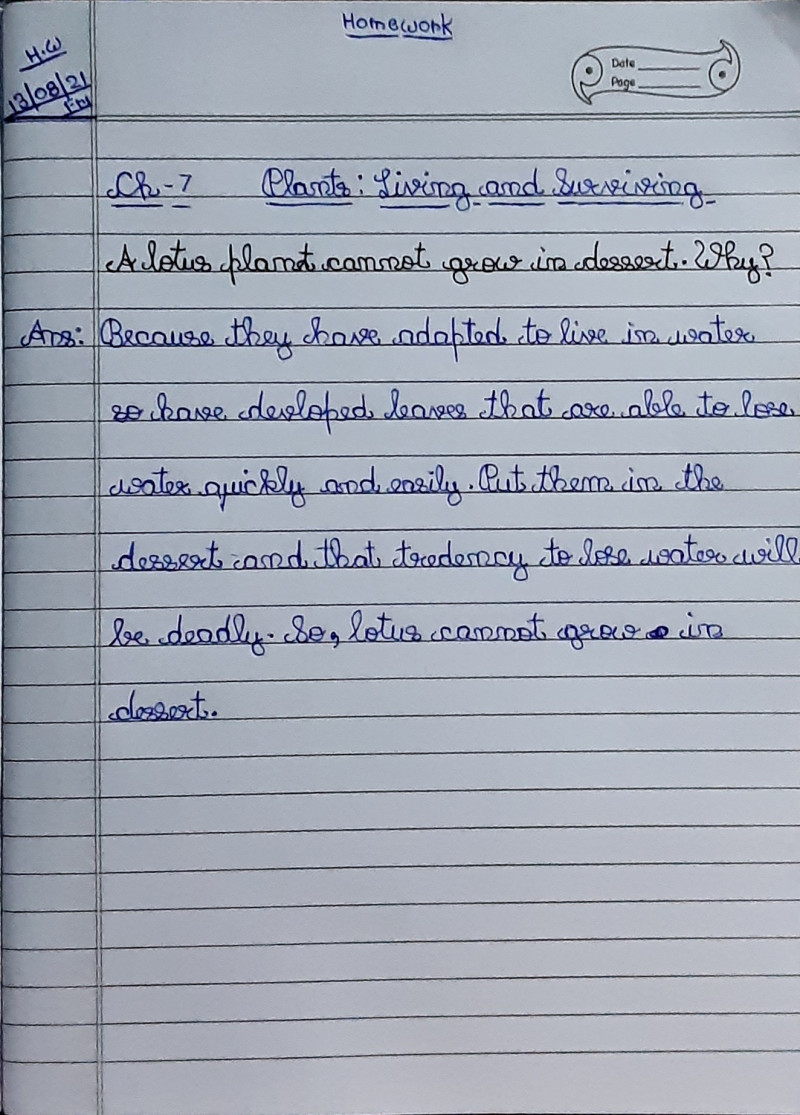 Homework
H.W
13/08/21
Fri
Date
Page
Ch-7 Plants: Living and Surviving
A lotus plant cannot grow in dessert. Why?
Ans: Because they have adapted to live in water
so have devloped leaves that are able to lose
water quickly and easily. Put them in the
dessert and that tredency to lose water will
be deadly. So, lotus cannot grow in
dessert.